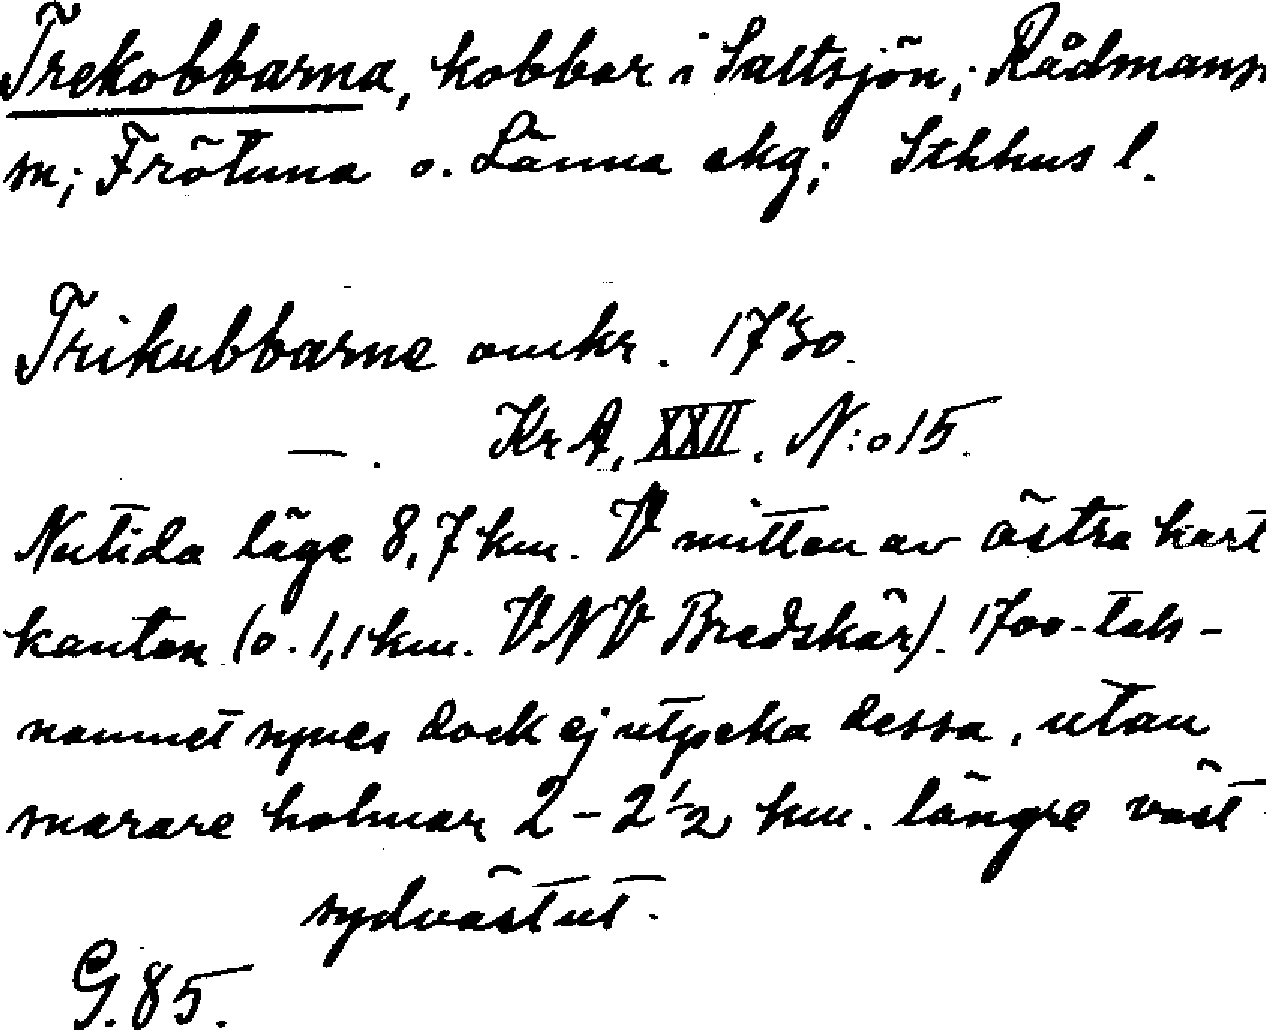 Trekobbarna, kobbar i Saltsjön; Rådmansö
sn; Frötuna o. Länna skg; Sthlms l.
Trikubbarne omkr. 1730.
—. KrA, XXII. N:o 15.
Nutida läge 8,7 km. V mitten av östra kart
kanten (o. 1,1 km. VNV Bredskär). 1700-tals-
namnet synes dock ej utpeka dessa, utan
snarare holmar 2-2½ km. längre väst
sydväst ut.
G. 85.